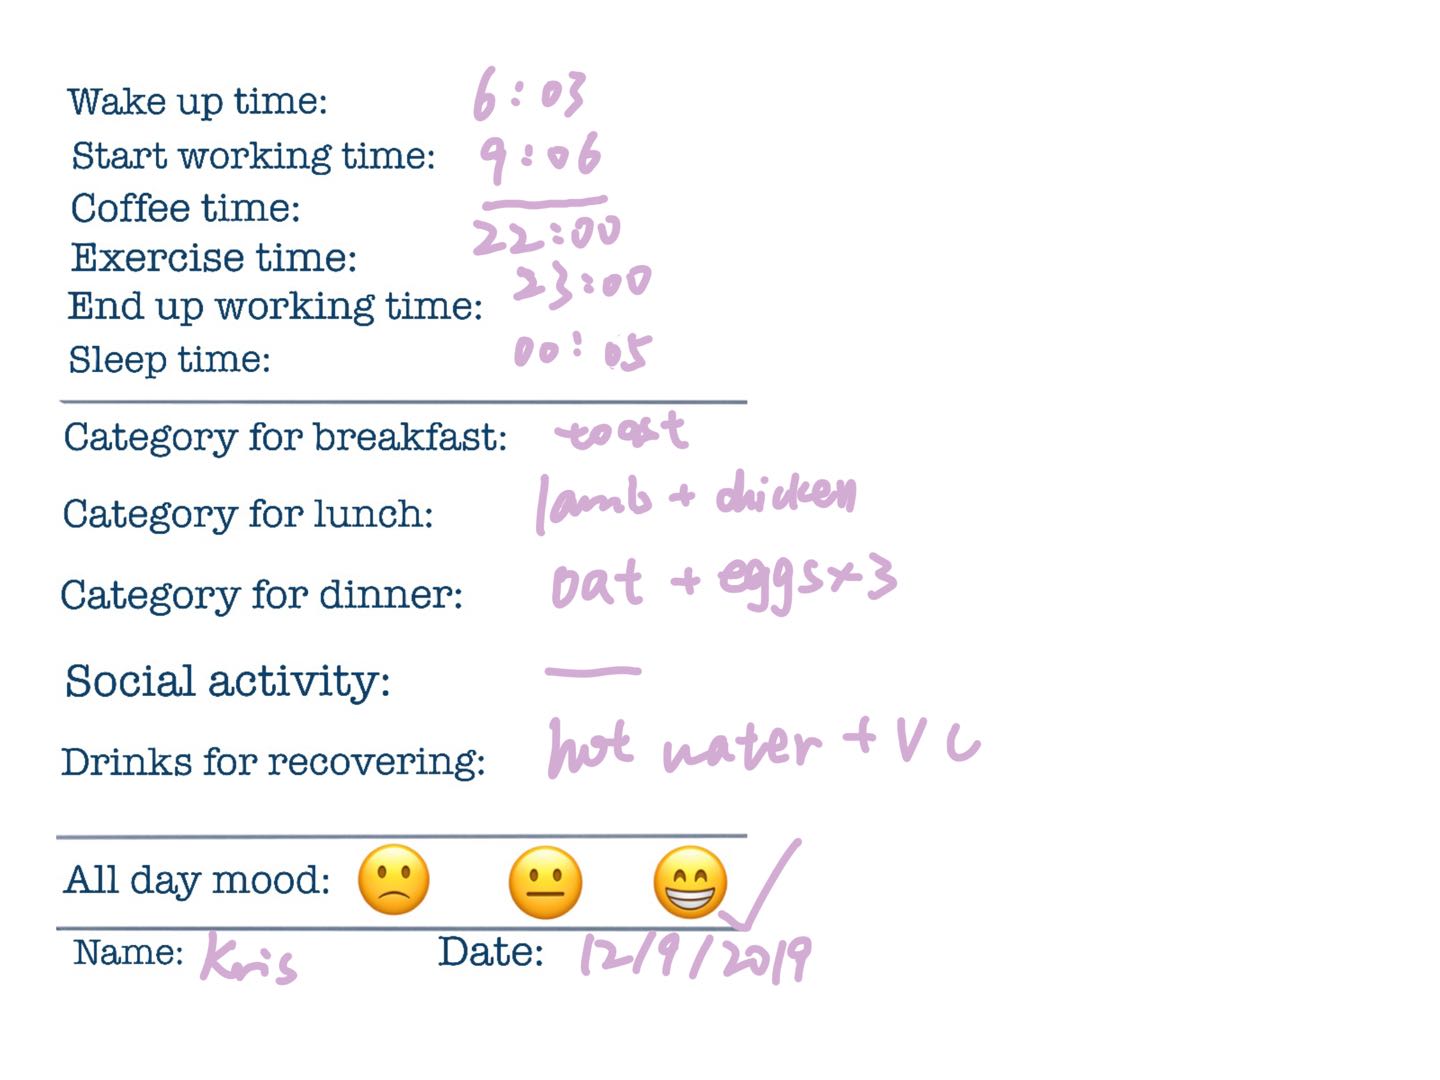 Wake up time: 6:03
Start working time: 9:06
Coffee time: —
Exercise time: 22:00
End up working time: 23:00
Sleep time: 00:05
Category for breakfast: toast
Category for lunch: lamb + chicken
Category for dinner: oat + eggs×3
Social activity: —
Drinks for recovering: hot water + VC
All day mood:
Name: Kris Date: 12/9/2019